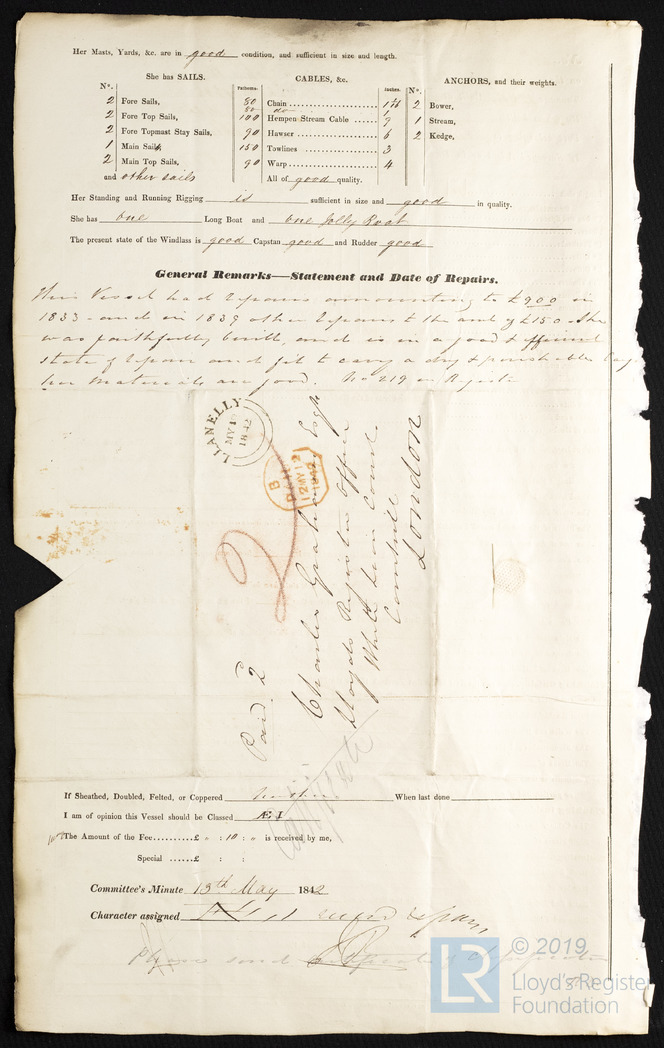 Her Masts, Yards, &c. are in good condition, and sufficient in size and length.
She has SAILS.
CABLES, &c.
ANCHORS, and their weights.
Nº.
Fathoms.
Inches.
Nº.
2 Fore Sails,
2 Fore Top Sails,
2 Fore Topmast Stay Sails,
1 Main Sails,
2 Main Top Sails,
and other sails
80 Chain
80 do 1
100 Hempen Stream Cable ...... 9
90 Hawser 6
150 Towlines 3
90 Warp 4
All of good quality.
2 Bower,
1 Stream,
2 Kedge,
Her Standing and Running Rigging is sufficient in size and good in quality.
She has One Long Boat and One Jolly Boat
The present state of the Windlass is good Capstan good and Rudder good
General Remarks—Statement and Date of Repairs.
This Vessel had Repairs amounting to £900 in
1833 and in 1839 other Repairs to the amt of £150 She
was faithfully built, and is in a good & efficient
state of Repair and fit to carry a dry & perishable
her materials are good. No 219 on
LLANELLY
MY
1842
B
PAID
12 MY 12
1842
2
Paid 2
Charles Graham Esqre
Lloyds Register Office
White Lion Court
Cornhill
London
If Sheathed, Doubled, Felted, or Coppered When last done
I am of opinion this Vessel should be Classed Æ I
The Amount of the Fee..........£ " : 10 : " is received by me,
Special ......£ : :
Committee's Minute 13th May 1842
Character assigned
Please send
© 2019
LR
Lloyd's Register
Foundation